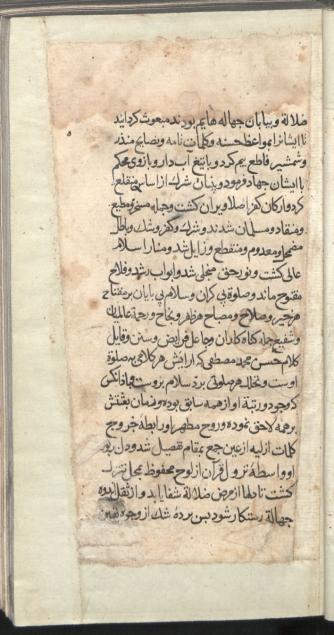 ضلالة و بیابان جهاله هایم بودند مبعوث کردانید
تا ایشانرا بمواعظ حسنه و کلمات تامه و نصایح منذر
و شمشیر قاطع بیم کرد و با تیغ آب دار و بازوی محکم
با ایشان جهاد فرمود و بنیان شرک از اساس منقلع
کرد و ارکان کفر اصلا ویران کشت و جمله مسخر و مطیع
و منقاد و مسلمان شدند و شرک و کفر و شک و باطل
مضمحل و معدوم و منقطع و زایل شد و منار اسلام
عالی کشت و نور حق متجلی شد و ابواب رشد و فلاح
مفتوح ماند و صلوة بی کران و سلام بی پایان بر مفتاح
هر خیر و صلاح و مصباح هر ظفر و نجاح و رحمة عالمیان
و شفیع جمله کناه کاران و جاعل فرایض و سنن و قایل
کلام حسن محمد مصطفی که آرایش هر کلامی به صلوة
اوست و نخالت هر صلوتی بر دسلام بروست و مانا آنکس
که وجود رتبة او از همه سابق بوده و زمان بعثتش
بر همه لاحق نموده و روح مطهر او رابطۀ خروج
کلمات ازلیه از عین جمع بمقام تفصیل شد و دل پر نور
او واسطۀ نزول قرآن از لوح محفوظ بمحل تنزیل
کشت تا دلها از مرض ضلالة شفا یابد و از ثقل اندوه
جهالة رستکار شود پس پردۀ شک از وجوه یقین